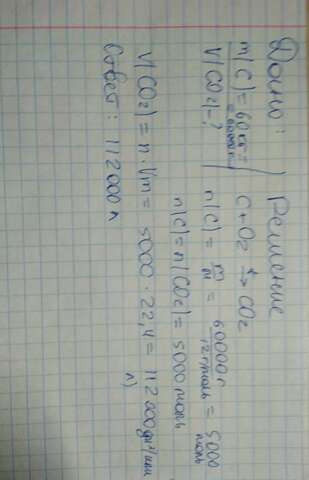 Дано:
m(C)=60кг=
=60000г
V(CO2)-?
Решение
C+O2 t→ CO2
n(C) = m/M = 60000г/12г/моль = 5000
моль
n(C)=n(CO2)=5000моль
V(CO2)=n·Vm=5000·22,4=112000дм³(или
л)
Ответ: 112000л